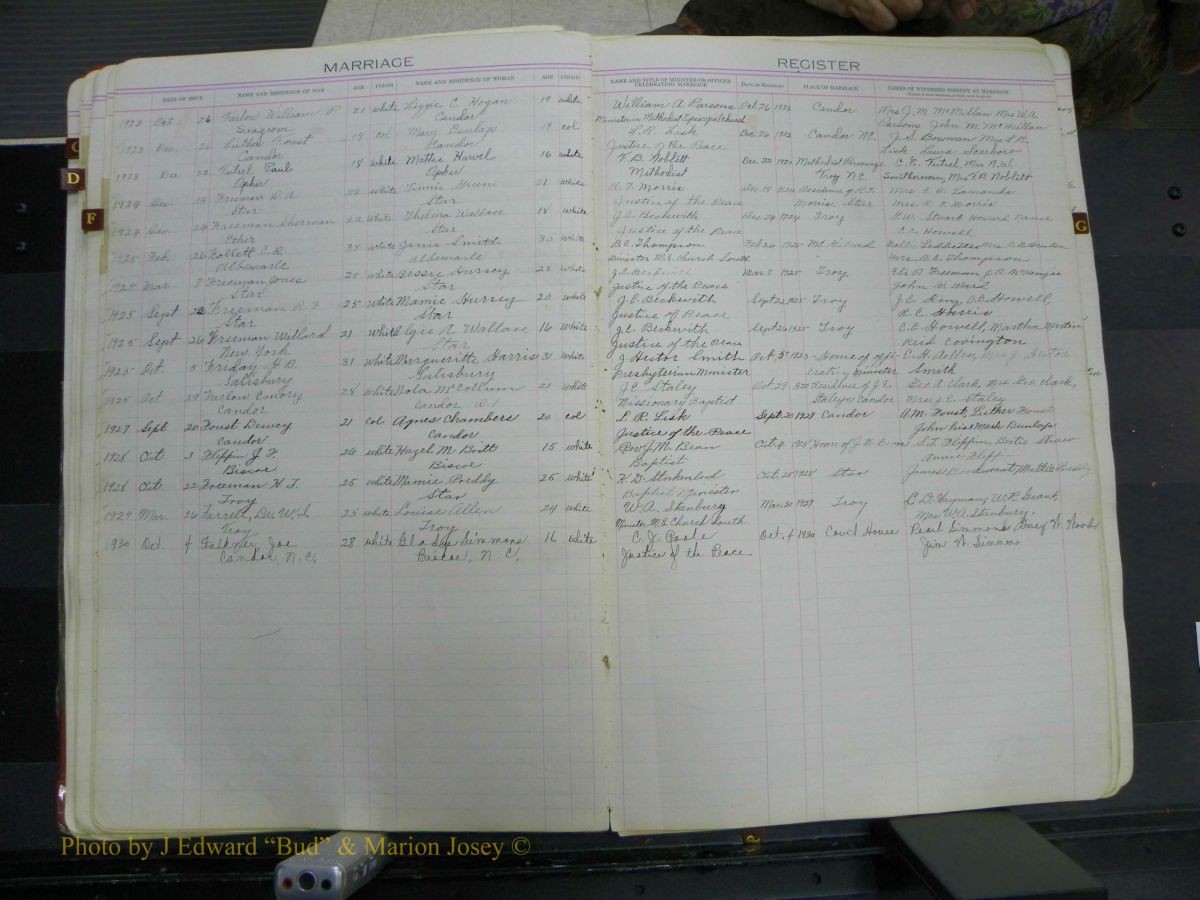 MARRIAGE
REGISTER
DATE OF ISSUE NAME AND RESIDENCE OF MAN AGE COLOR NAME AND RESIDENCE OF WOMAN AGE COLOR NAME AND TITLE OF MINISTER OR OFFICER CELEBRATING MARRIAGE DATE OF MARRIAGE PLACE OF MARRIAGE NAMES OF WITNESSES PRESENT AT MARRIAGE
1923 Oct 26 Farlow William P 21 white Lizzie C Hogan 19 white William A Parsons Oct 26 1923 Candor Mrs J. M. McMillan Mrs W.A.
Seagrove Candor Minister in Methodist Episcopal church Parsons John M. McMillan
1923 Dec. 26 Luther Foust 19 col Mary Dunlap 19 col L. R. Lisk Dec 26 1923 Candor NC. Bowman Mrs L.R.
Candor Candor Justice of the Peace Lisk Laura Scarboro
1923 Dec. 22 Futrel Paul 18 white Mattie Harvel 16 white Noblitt Dec. 22 Methodist Parsonage C. E. Futrel, Mrs N.W.
Ophir Ophir Methodist Troy NC. Smitherman, Mrs Noblitt
1924 Dec. 15 Freeman D A 22 white Green 21 white R. T. Morris Dec. 15 1924 Residence of R.T. Mrs C. E.
Star Star Justice of the Peace Morris Star Mrs R. T. Morris
1924 Dec. 24 Freeman Sherman 22 white Thelma Wallace 18 white J. C. Beckwith Dec 24 1924 Troy Stuart Howard
Ether Star Justice of the Peace C. C. Howell
1925 Feb 26 Follett C. R 35 white Janie Smith 30 white B. C. Thompson Feb 26 1925 Mt. Gilead
Albemarle Albemarle Minister M. E. Church South Mrs. B. C. Thompson
Mar 7 Freeman Jones 25 white Bessie Hursey 23 white J. C. Beckwith Mar. 7 1925 Troy Freeman
Star Star Justice of the Peace John
1925 Sept 22 Freeman R. F 25 white Mamie Hursey 20 white J. C. Beckwith Sept 22 1925 Troy J. C. King, C. C. Howell
Star Star Justice of Peace R. C. Harris
1925 Sept 26 Freeman Willard 21 white Wallace 16 white J. C. Beckwith Sept 26 1925 Troy C. C. Howell, Martha Martin
New York Star Justice of the Peace Reid Covington
1925 Oct. 5 Friday 31 white Margueritte Harris 31 white J. Hector Smith Oct 5 1925 Home of offi- Mrs J. Hector
Salisbury Salisbury Presbyterian Minister ciating minister Smith
1925 Oct 29 Furlow Emory 28 white Nola McCollum 21 white J. E. Staley Oct 29, Residence of J. E. Geo A. Clark, Mrs Geo Clark,
Candor Candor Missionary Baptist Staley, Candor Mrs J. E. Staley
1927 Sept 20 Foust Dewey 21 Col Agnes Chambers 20 col L. R. Lisk Sept. 20 1927 Candor A. M. Foust, Luther Foust
Candor Candor Justice of the Peace John his Mark Dunlap
1928 Oct 3 Flippin J. F. 26 white Hazel M. Britt 15 white Rev. J. M. Bean Oct. 4 1928 Home of J. M. Bean S. T. Flippin, Bertie Shaw
Biscoe Biscoe Baptist Annie Flippin
1928 Oct. 22 Freeman H. T. 25 white Mamie Preddy 25 white K. D. Stukenbrok Oct. 28 1928 Star James
Troy Star Baptist Minister
1929 Mar. 26 Ferrell, Dr. W. L. 25 white Louise Allen 24 white W. A. Stanbury Mar. 30 1929 Troy C. D. Haymon, W. R. Grant,
Troy Troy Minister M. E. Church South Mrs W. A. Stanbury.
1930 Oct. 4 Falkner Joe 28 white Gladys Simmons 16 white C. J. Poole Oct. 4 1930 Court House Pearl Simmons W. Woods
Candor, N. C. Biscoe, N. C. Justice of the Peace Jim W. Simmons
C
D
F
G
Photo by J Edward “Bud” & Marion Josey ©